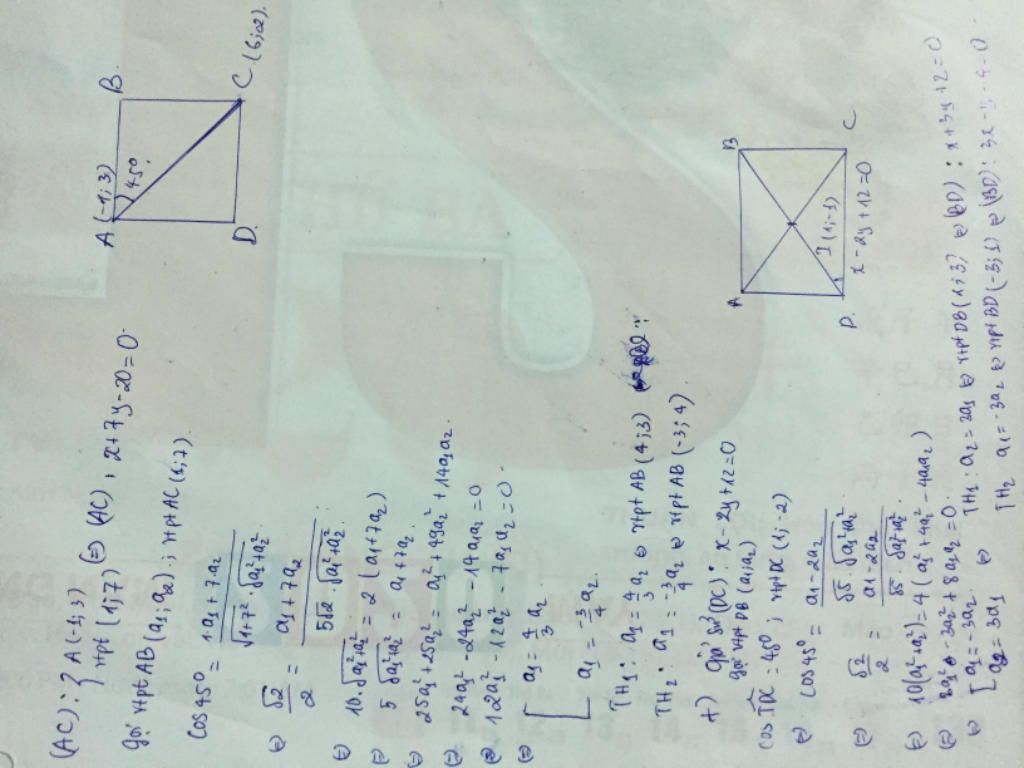 (AC). ? A(-1;3)
vtpt (1;7) (=) (AC) : x+7y-20=0.
gọi vtpt AB (a1; a2) ; vtpt AC (1;7).
A (-1;3)
B.
45°.
D.
C (6;2).
cos 45° = 1.a1+7a2 / √1+7² . √a1²+a2²
(=) √2/2 = a1+7a2 / 5√2 √a1²+a2²
(=) 10.√a1²+a2² = 2(a1+7a2)
(=) 5 √a1²+a2² = a1+7a2
(=) 25a1²+25a2² = a1²+49a2²+14a1a2.
(=) 24a1²-24a2²-14a1a2=0
(=) 12a1²-12a2²-7a1a2=0.
(=) [ a1 = 4/3 a2
a1 = -3/4 a2.
TH1: a1 = 4/3 a2 (=) vtpt AB (4;3)
TH2: a1 = -3/4 a2 (=) vtpt AB (-3;4)
+) (DC): x-2y+12=0
gọi vtpt DB (a1;a2)
A
B
I (1;-1)
D.
C
x-2y+12=0
cos IDC = 45° ; vtpt DC (1;-2)
(=) cos 45° = a1-2a2 / √5.√a1²+a2²
(=) √2/2 = a1-2a2 / √5 √a1²+a2²
(=) 10(a1²+a2²)=4(a1²+4a2²-4a1a2)
(=) -3a2²+8a1a2=0.
(=) [ a1=-3a2. (=) TH1: a2=3a1 (=) vtpt DB (1;3) (=) (BD): x+3y+2=0
a2=3a1 TH2 a1=-3a2 (=) vtpt BD (-3;1) (=) (BD): 3x-y-4=0